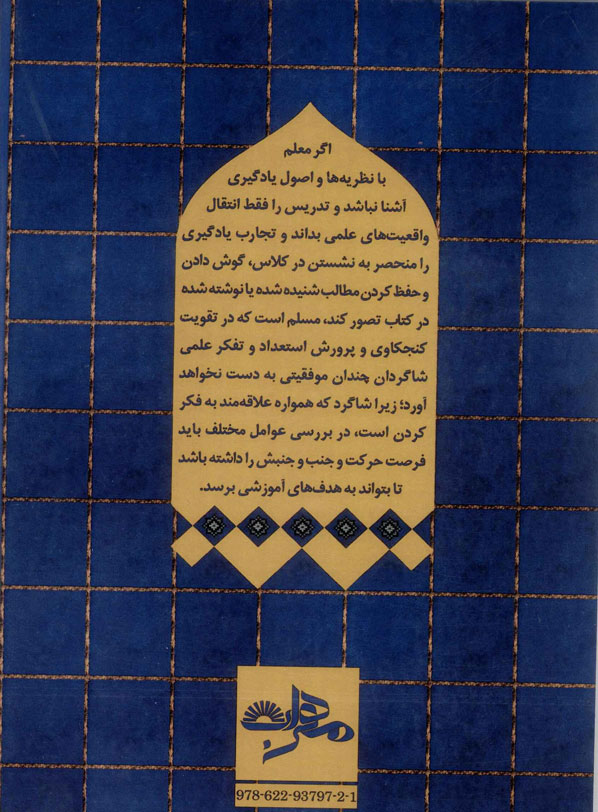 اگر معلم
با نظریه‌ها و اصول یادگیری
آشنا نباشد و تدریس را فقط انتقال
واقعیت‌های علمی بداند و تجارب یادگیری
را منحصر به نشستن در کلاس، گوش دادن
و حفظ کردن مطالب شنیده شده یا نوشته شده
در کتاب تصور کند، مسلم است که در تقویت
کنجکاوی و پرورش استعداد و تفکر علمی
شاگردان چندان موفقیتی به دست نخواهد
آورد؛ زیرا شاگرد که همواره علاقه‌مند به فکر
کردن است، در بررسی عوامل مختلف باید
فرصت حرکت و جنب و جنبش را داشته باشد
تا بتواند به هدف‌های آموزشی برسد.
978-622-93797-2-1